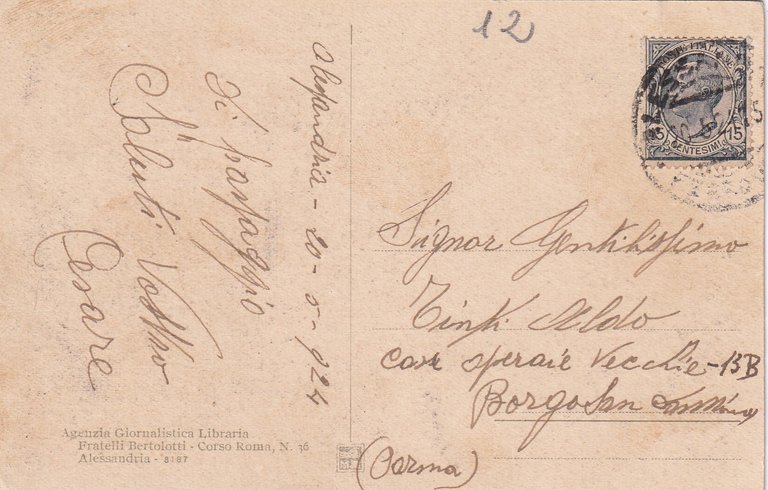 12
Alessandria - 20-5-924
Di passaggio
Saluti Vostro
Cesare
Agenzia Giornalistica Libraria
Fratelli Bertolotti - Corso Roma, N. 36
Alessandria - 8187
POSTE ITALIANE
15 15
CENTESIMI
Signor Gentilissimo
Aldo
case operaie Vecchie - 13B
Borgo San
(Parma)